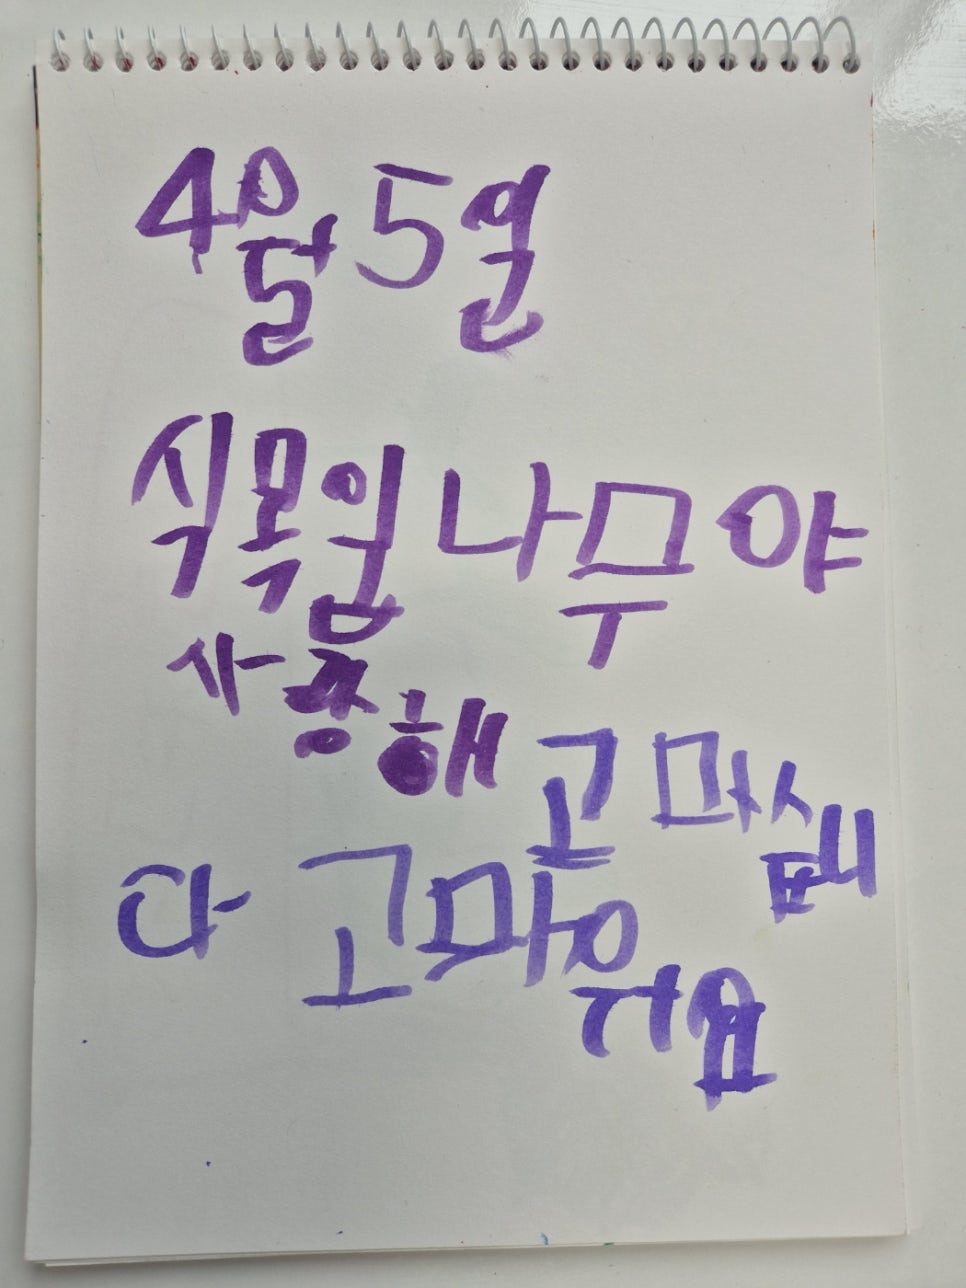 4월 5일
식목일 나무야
사랑해 고마
다 고마워요